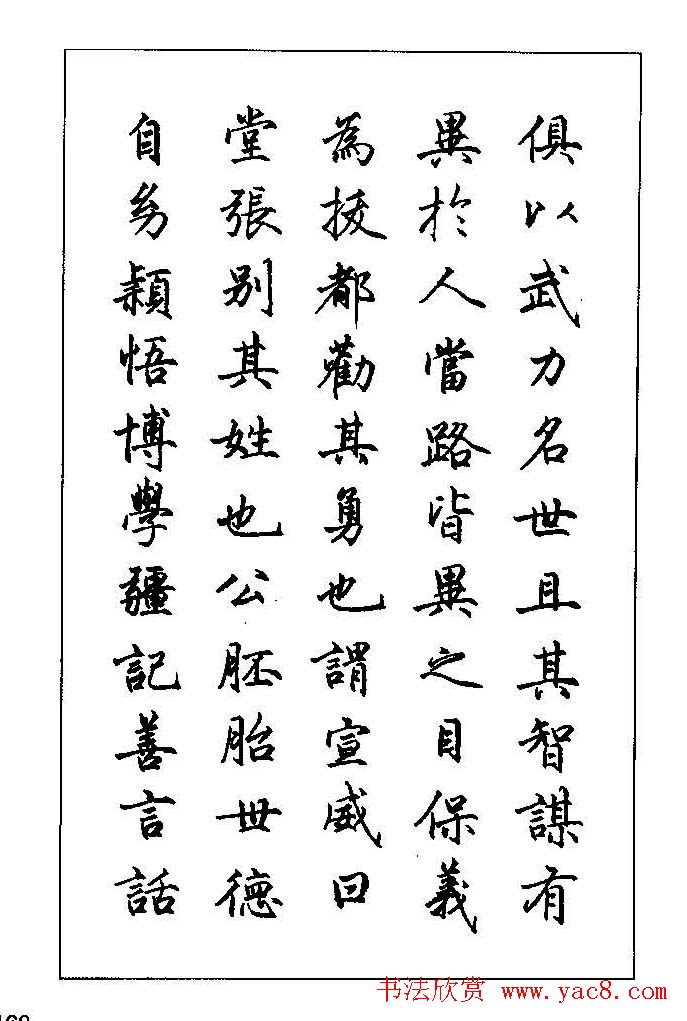 俱以武力名世且其智謀有
異於人當路皆異之目保義
為拔都勸其勇也謂宣威曰
堂張別其姓也公胚胎世德
自幼穎悟博學疆記善言話
书法欣赏 www.yac8.com